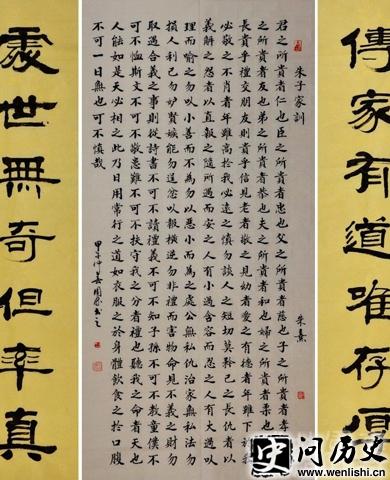 傳家有道唯存厚
朱子家訓
朱熹
君之所貴者仁也臣之所貴者忠也父之所貴者慈也子之所貴者孝
之所貴者友也弟之所貴者恭也夫之所貴者和也婦之所貴者柔也
長貴乎禮交朋友貴乎信見老者敬之見幼者愛之有德者年雖下於我
必敬之不肖者年雖高於我必遠之慎勿談人之短切莫矜己之長仇者以
義解之怨者以直報之隨所遇而安之人有小過含容而忍之人有大過以
理而喻之勿以小善而不為勿以惡小而為之處公無私仇治家無私法勿
損人利己勿妒賢嫉能勿逞忿以報橫逆勿非禮而害物命見不義之財勿
取遇合義之事則從詩書不可不讀禮義不可不知子孫不可不教童僕不
可不恤斯文不可不敬患難不可不扶守我之分者禮也聽我之命者天也
人能如是天必相之此乃日用常行之道如衣服之於身體飲食之於口腹
不可一日無也可不慎哉
處世無奇但率真
问历史
www.wenlishi.cn